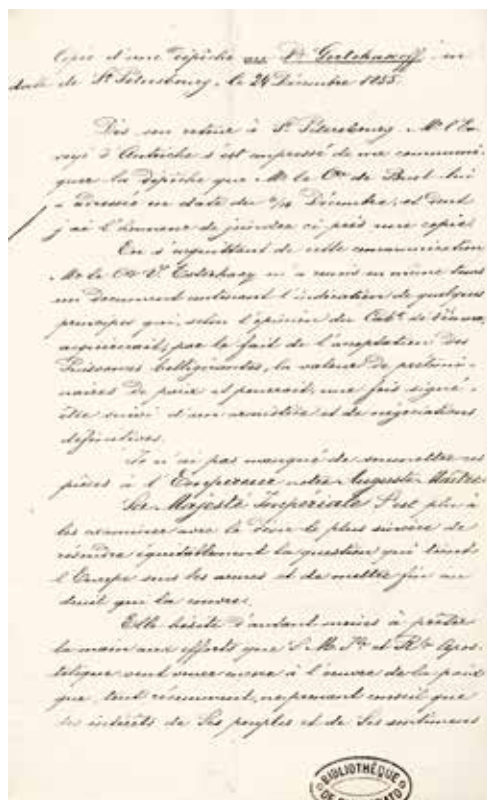 Copie d'une dépêche au Pce Gortchacoff, en
date de St Pétersbourg, le 24 Décembre 1855.
Dès son retour à St Pétersbourg, Mr l'En-
voyé d'Autriche s'est empressé de me communi-
quer la dépêche que Mr le Cte de Buol lui
a adressée en date du Décembre, et dont
j'ai l'honneur de joindre ci près une copie.
En s'acquittant de cette communication
Mr le Cte V. Esterhazy m'a remis en même temps
un document contenant l'indication de quelques
principes qui, selon l'opinion du Cabt de Vienne,
acquerrait, par le fait de l'acceptation des
Puissances belligérantes, la valeur de prélimi-
naires de paix et pourrait, une fois signé,
être suivi d'un armistice et de négociations
définitives.
Je n'ai pas manqué de soumettre ces
pièces à l'Empereur notre Auguste Maître.
Sa Majesté Impériale s'est plu à
les examiner avec le désir le plus sincère de
résoudre équitablement la question qui tient
l'Europe sous les armes et de mettre fin au
deuil qui la couvre.
Elle hésite d'autant moins à prêter
la main aux efforts que S. M. Ile et Rle Apos-
tolique veut vouer encore à l'oeuvre de la paix
que, tout récemment, ne prenant conseil que
des intérêts de Ses peuples et de Ses sentimens
BIBLIOTHÈQUE